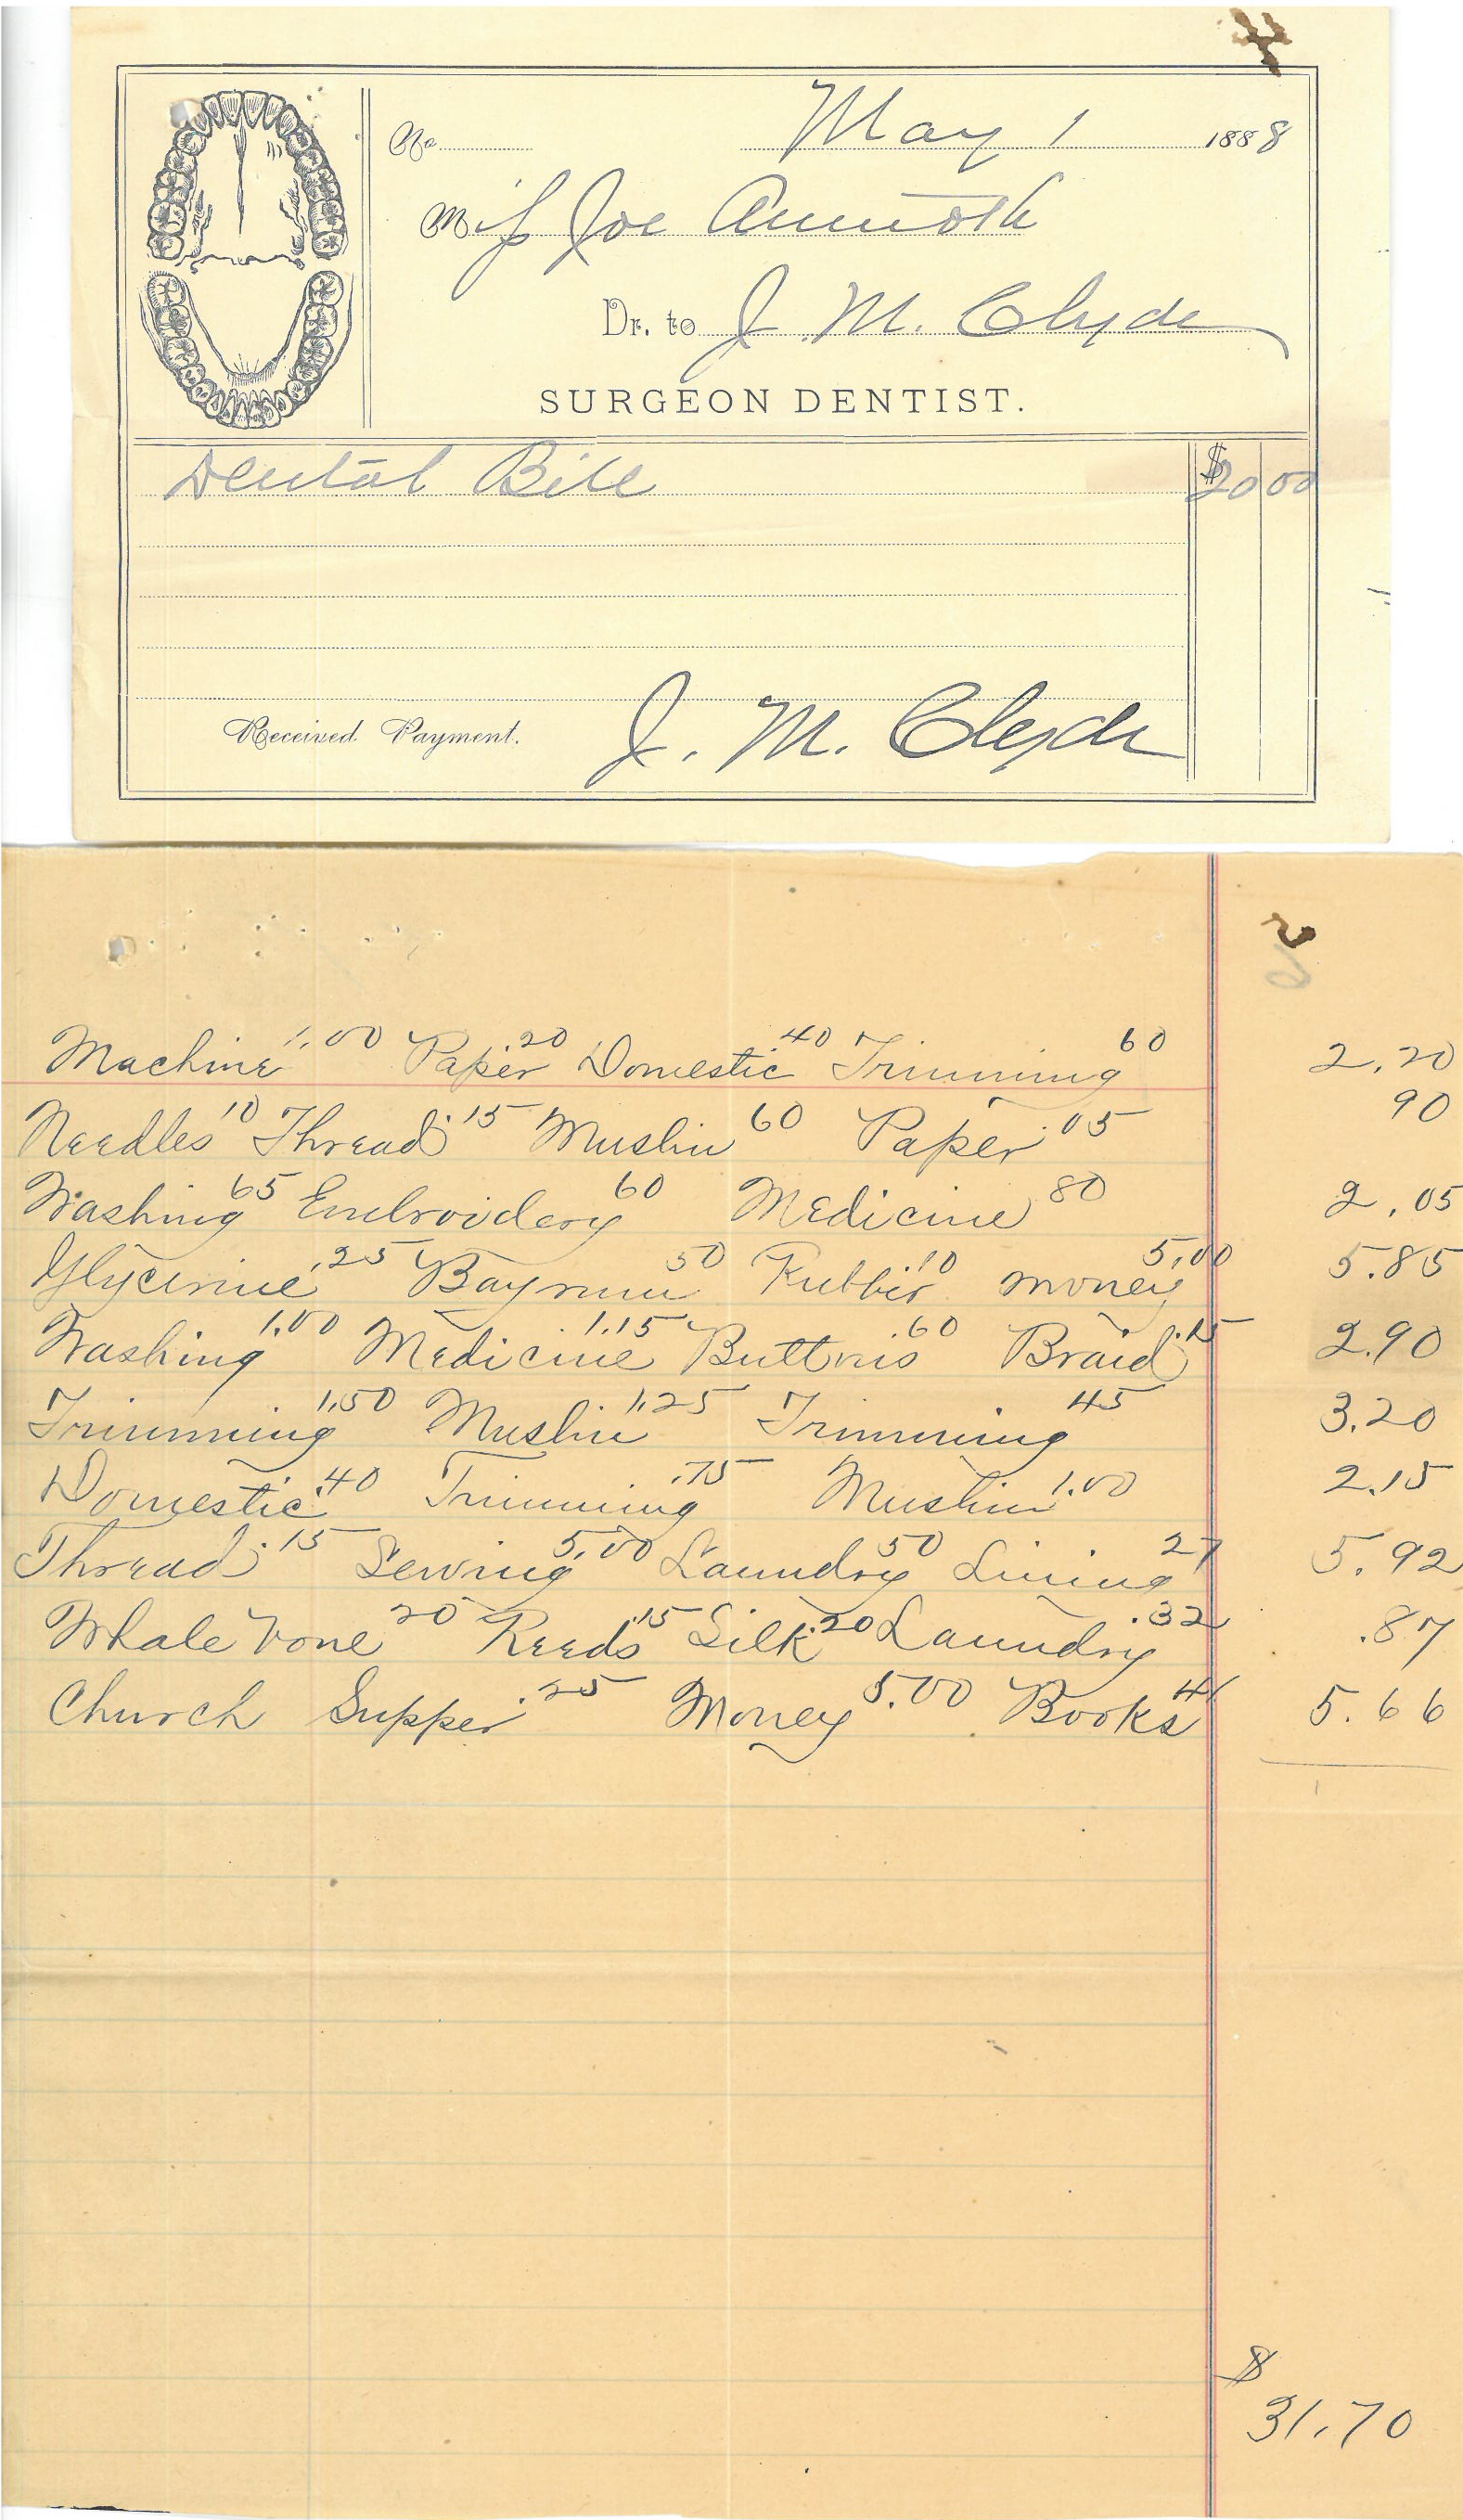 4
No. May 1 1888
Miss Joe
Dr. to J. M. Clyde
SURGEON DENTIST.
Dental Bill $20 00
Received Payment. J. M. Clyde
5
Machine 1.00 Paper 20 Domestic 40 Trimming 60 2.20
Needles 10 Thread 15 Muslin 60 Paper 05 90
Washing 65 Embroidery 60 Medicine 80 2.05
Glycerine .25 Bayrum 50 Rubber 10 money 5.00 5.85
Washing 1.00 Medicine 1.15 Buttons .60 Braid .15 2.90
Trimming 1.50 Muslin 1.25 Trimming 45 3.20
Domestic .40 Trimming .75 Muslin 1.00 2.15
Thread .15 Sewing 5.00 Laundry 50 Lining 27 5.92
Whale bone 20 Reeds .15 Silk .20 Laundry .32 .87
Church Supper .25 Money 5.00 Books 41 5.66
$
31.70